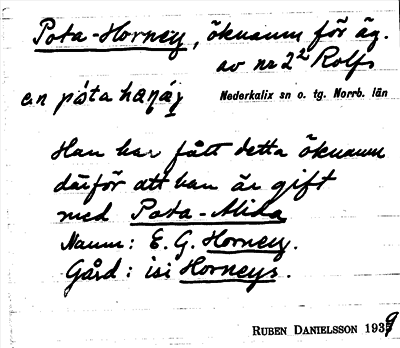 Pota-Horney, öknamn för äg.
av nr 2² Rolfs
en pòta haŋǽi Nederkalix sn o. tg. Norrb. län
Han har fått detta öknamn
därför att han är gift
med Pota-Alida
Namn: E. G. Horney.
Gård: isi Horneys.
RUBEN DANIELSSON 1939